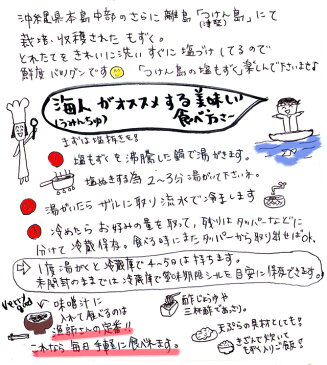 沖縄県本島中部のさらに離島「つけん島」にて
(津堅)
栽培・収穫された もずく。
とれたてを きれいに洗い すぐに 塩づけ してるので
鮮度バツグンです 「つけん島の塩もずく」楽しんで下さいませよ
海人がオススメする美味しい
(うみんちゅ)
食べ方~
まずは塩抜きを!
塩もずくを 沸騰した鍋で湯がきます。
塩ぬきする為 2~3分 湯がいて下さいネ。
湯がいたら ザルに取り 流水で冷まします
冷めたら お好みの量を取って、残りは タッパーなどに
分けて 冷蔵保存。食べる時にまたタッパーから取り出せばOK.
1度湯がくと 冷蔵庫で 4~5日は持ちます。
未開封のままでは 冷蔵庫で賞味期限シールを目安に保存できます。
very good
味噌汁に
入れて食べるのは
漁師さんの定番!!
これなら 毎日 手軽に 食べれます。
酢じょうゆや
三杯酢であっさり。
天ぷらの具材としても!
きざんで炊いて
もずく入りご飯!